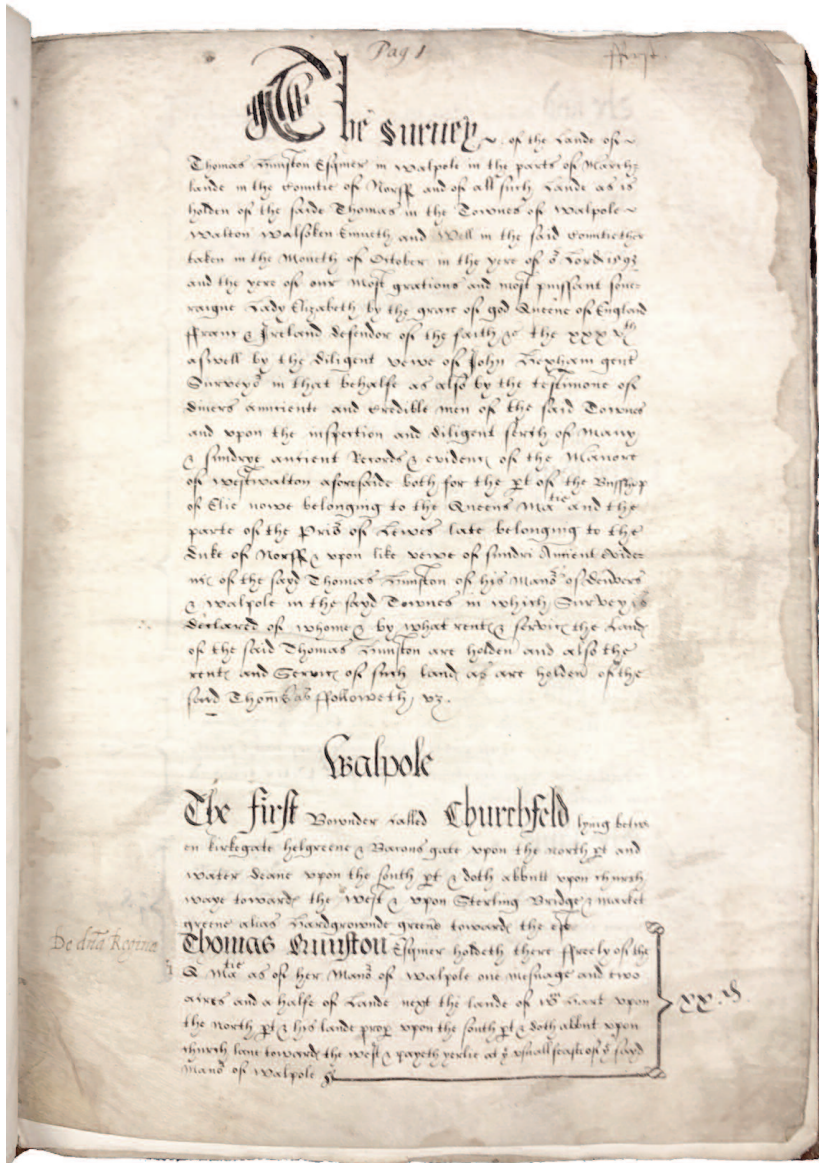 Pag 1
ffirst
The Survey of the Lande of
Thomas Esquier in Walpole in the parts of Marsh
lande in the Countie of Norff and of all such Lande as is
holden of the saide Thomas in the Townes of Walpole
Walton Walsoken Emneth and Well in the said Countie
taken in the Moneth of October in the yere of oʳ Lord
and the yere of our Most gratious and most puissant sove
raigne Lady Elizabeth by the grace of god Queene of England
ffranc & Ireland defendor of the faith &c the xxxvth
aswell by the diligent vewe of John Hexham gent
Surveyoʳ in that behalfe as also by the testimone of
divers annciente and credible men of the said Townes
and upon the inspection and diligent serch of Many
& sundrye ancient Records & evidenc of the Manore
of westwalton aforesaide both for the pt of the Busshop
of Elie nowe belonging to the Queens Matie and the
parte of the Prioʳ of Lewes late belonging to the
Duke of Norff & upon like vewe of sundri Ancient Evide
nc of the sayd Thomas of his Manoʳ of
& walpole in the sayd Townes in which Survey is
declared of whome & by what rent & servic the Land
of the said Thomas are holden and also the
rent and Servic of such land as are holden of the
said Thomas as ffolloweth, vz.
Walpole
The first Bownder called Churchfeld lying betw
en kirkegate helgreene & Barons gate upon the north pt and
water deane upon the south pt & doth abbutt upon church
waye toward the west & upon Sterling Bridge & market
greene alias Hardgrownde greene toward the est
De dna Regina
Thomas Esquier holdeth there ffreely of the
Q Matie as of her Manoʳ of Walpole one mesuage and two
acres and a halfe of Lande next the lande of Wm Hart upon
the north pt & his lande prop upon the south pt & doth abbut upon
church lane toward the west & payeth yerlie at yᵉ usuall feasts of yᵉ sayd
Manoʳ of Walpole
xx.d